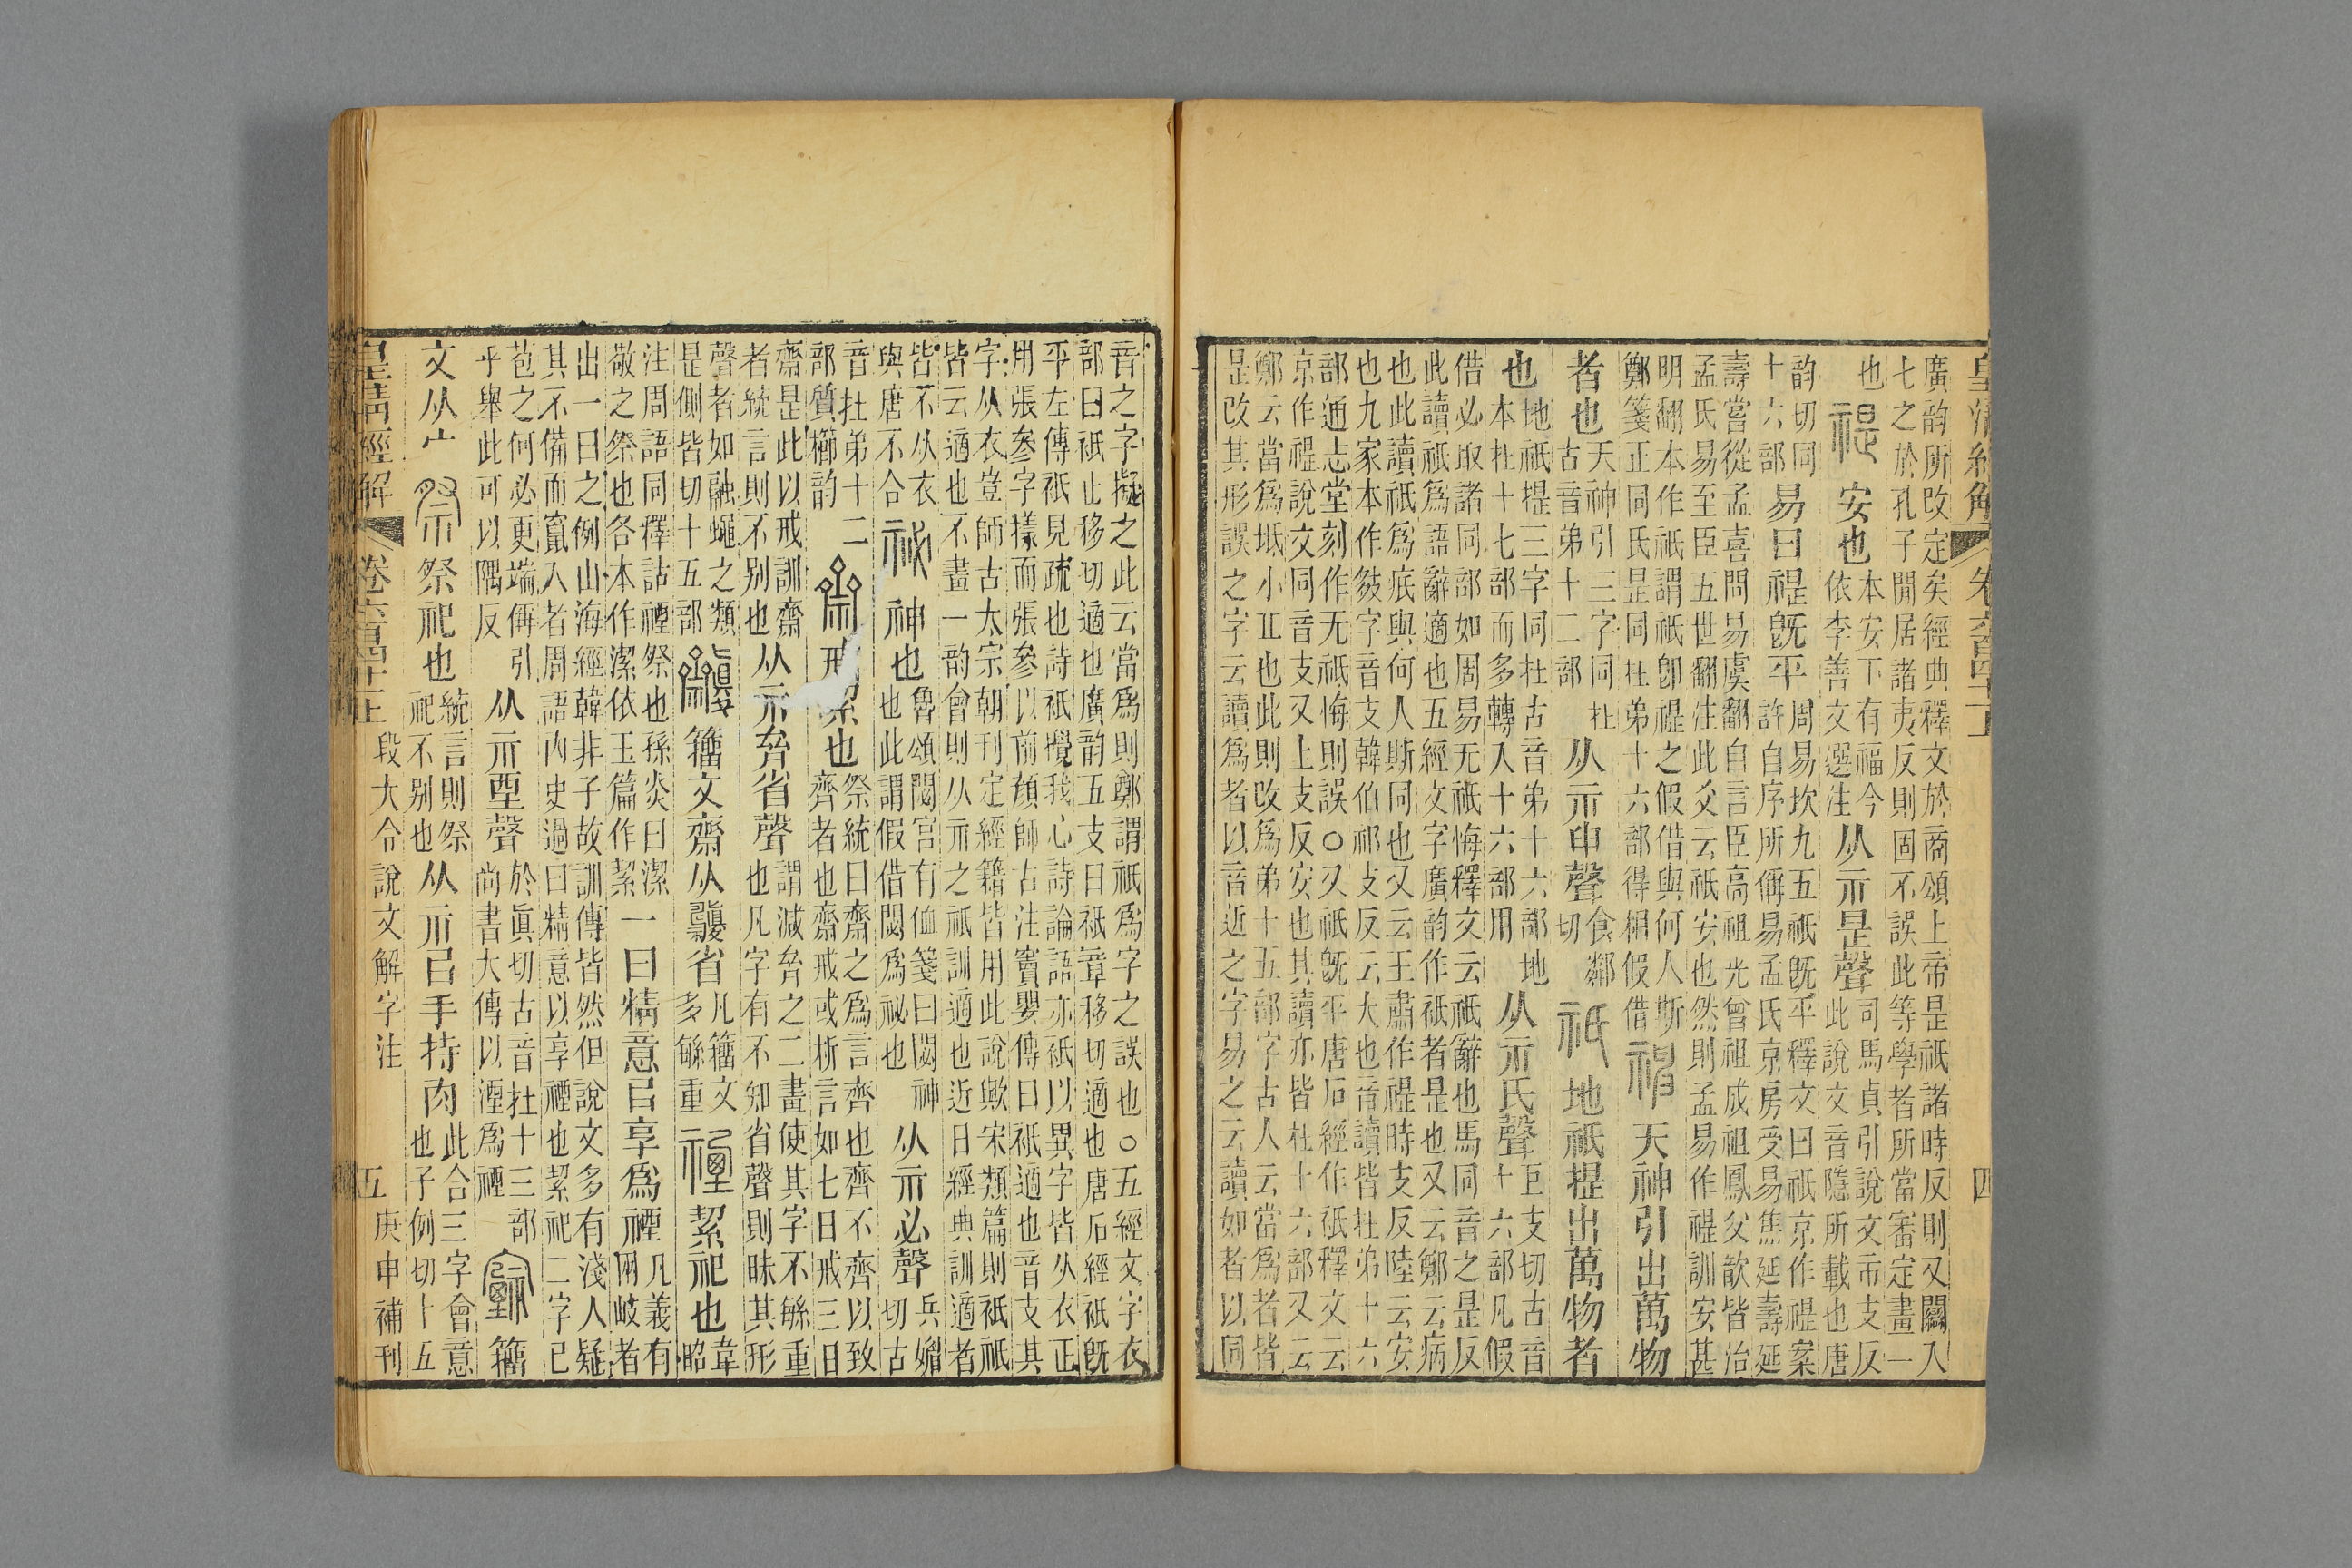 皇清經解
四
廣韵所改定矣經典釋文於商頌上帝是祇諸時反則又闌入
七之於孔子閒居諸夷反則固不誤此等學者所當審定畫一
也禔安也本安下有福今依李善文選注从示是聲司馬貞引說文市支反此說文音隱所載也唐
韵切同十六部易曰禔旣平周易坎九五祇旣平釋文曰祇京作禔案許自序所偁易孟氏京房受易焦延壽延
壽嘗從孟喜問易虞翻自言臣高祖光曾祖成祖鳳父歆皆治
孟氏易至臣五世翻注此爻云祇安也然則孟易作禔訓安甚
明翻本作祇謂祇卽禔之假借與何人斯鄭箋正同氏是同在弟十六部得相假借神天神引出萬物
者也天神引三字同在古音弟十二部从示申聲食鄰切祇地祇提出萬物者
也地祇提三字同在古音弟十六部地本在十七部而多轉入十六部用从示氏聲巨支切古音十六部凡假
借必取諸同部如周易无祇悔釋文云祇辭也馬同音之是反
此讀祇爲語辭適也五經文字廣韵作祇者是也又云鄭云病
也此讀祇爲疧與何人斯同也又云王肅作禔時支反陸云安
也九家本作敍字音支韓伯祁支反云大也音讀皆在弟十六
部通志堂刻作无祇悔則誤○又祇旣平唐石經作祇釋文云
京作禔說文同音支又上支反安也其讀亦皆在十六部又云
鄭云當爲坻小丘也此則改爲弟十五部字古人云當爲者皆
是改其形誤之字云讀爲者以音近之字易之云讀如者以同
音之字擬之此云當爲則鄭謂祇爲字之誤也○五經文字衣
部曰祇止移切適也廣韵五支曰祇章移切適也唐石經祇旣
平左傳祇見疏也詩祇攪我心詩論語亦祇以異字皆从衣正
用張參字㨾而張參以前顏師古注竇嬰傳曰祇適也音支其
字从衣豈師古太宗朝刊定經籍皆用此說歟宋類篇則祇祇
皆云適也不畫一韵會則从示之祇訓適也近日經典訓適者
皆不从衣與唐不合祕神也魯頌閟宮有侐箋曰閟神也此謂假借閟爲祕也从示必聲兵媚切古
音在弟十二部質櫛韵齋戒潔也祭統曰齋之爲言齊也齊不齊以致齊者也齋戒或析言如七日戒三日
齋是此以戒訓齋者統言則不別也从示𠫼省聲謂減𠫼之二畫使其字不緐重也凡字有不知省聲則昧其形
聲者如融蠅之類是側皆切十五部籒文齋从省凡籒文多緐重禋絜祀也韋昭
注周語同釋詁禋祭也孫炎曰潔敬之祭也各本作潔依玉篇作絜一曰精意㠯享爲禋凡義有㒳岐者
出一曰之例山海經韓非子故訓傳皆然但說文多有淺人疑
其不備而竄入者周語內史過曰精意以享禋也絜祀二字已
苞之何必更端偁引乎舉此可以隅反从示垔聲於眞切古音在十三部尚書大傳以湮爲禋籒
文从宀祭祭祀也統言則祭祀不別也从示㠯手持肉此合三字會意也子例切十五
皇清經解
卷六百四十一上
段大令說文解字注
五
庚申補刊